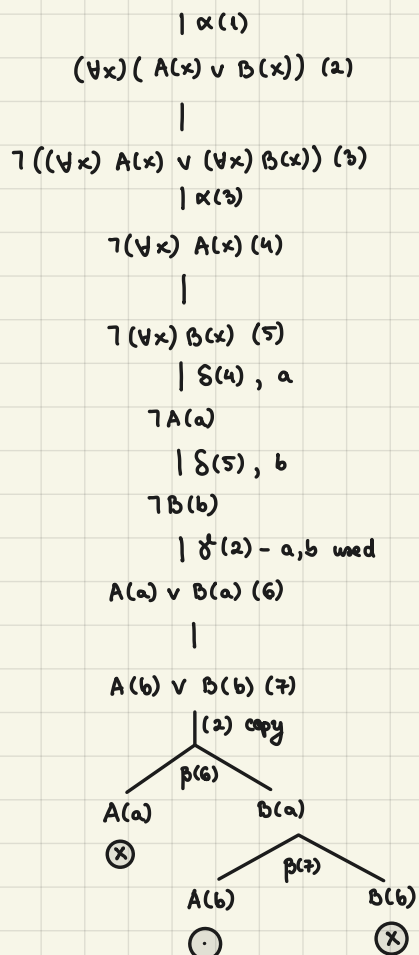 | α(1)
(∀x)( A(x) ∨ B(x)) (2)
|
¬((∀x) A(x) ∨ (∀x) B(x)) (3)
| α(3)
¬(∀x) A(x) (4)
|
¬(∀x) B(x) (5)
| δ(4) , a
¬A(a)
| δ(5) , b
¬B(b)
| γ(2) - a,b used
A(a) ∨ B(a) (6)
|
A(b) ∨ B(b) (7)
| (2) copy
β(6)
A(a) B(a)
ⓧ β(7)
A(b) B(b)
⊙ ⓧ